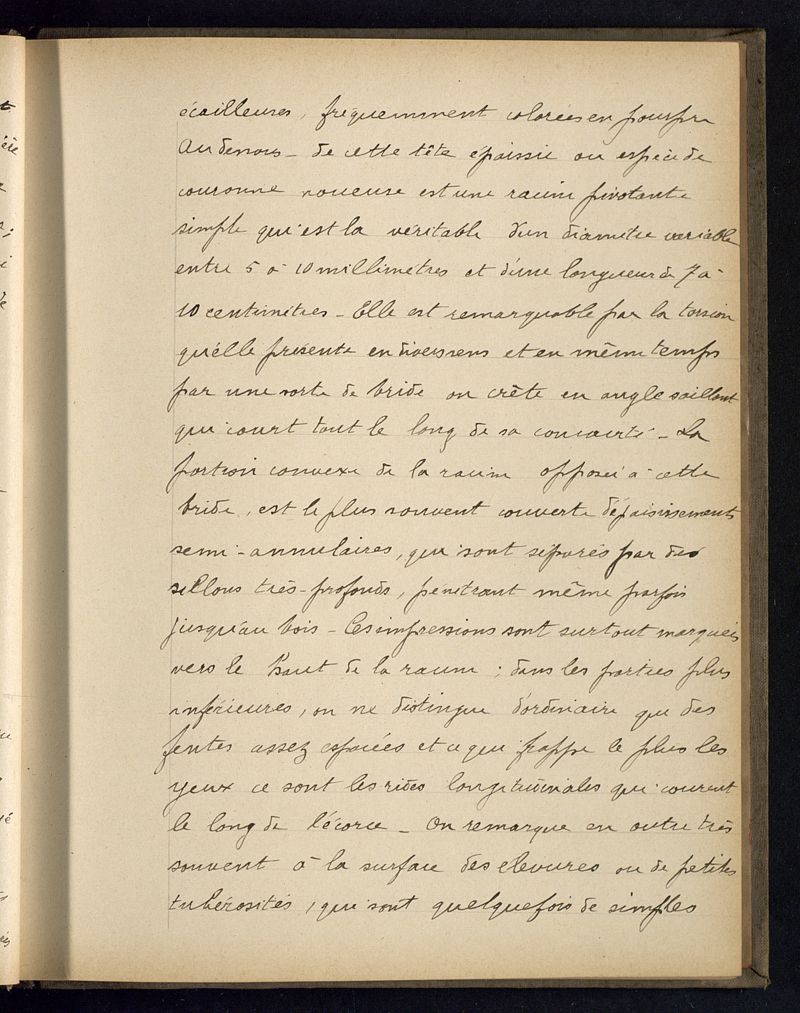 écailleuses, fréquemment colorées en pourpre
Au dessous - de cette tête épaissie ou espèce de
couronne noueuse est une racine pivotante
simple qui est la véritable d'un diamètre variable
entre 5 à 10 millimètres et d'une longueur de 7 à
10 centimètres - Elle est remarquable par la torsion
qu'elle présente en divers sens et en même temps
par une sorte de bride ou crête en angle saillant
qui court tout le long de sa concavité - La
portion convexe de la racine opposée à cette
bride, est le plus souvent couverte d'épaississements
semi-annulaires, qui sont séparés par des
sillons très-profonds, pénétrant même parfois
jusqu'au bois - Ces impressions sont surtout marquées
vers le haut de la racine ; dans les parties plus
inférieures, on ne distingue d'ordinaire que des
fentes assez espacées et ce qui frappe le plus les
yeux ce sont les rides longitudinales qui courent
le long de l'écorce - On remarque en outre très
souvent à la surface des élevures ou de petites
tubérosités, qui sont quelquefois de simples